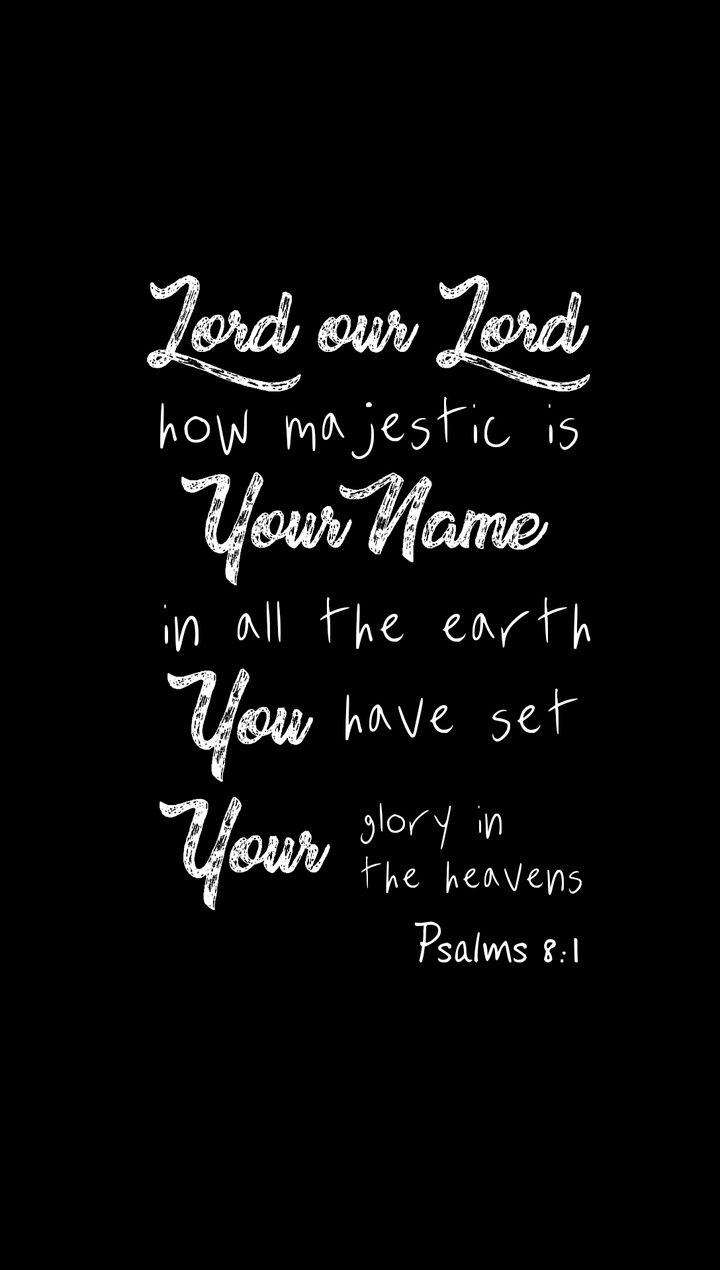 Lord our Lord
how majestic is
Your Name
in all the earth
You have set
Your glory in
the heavens
Psalms 8:1